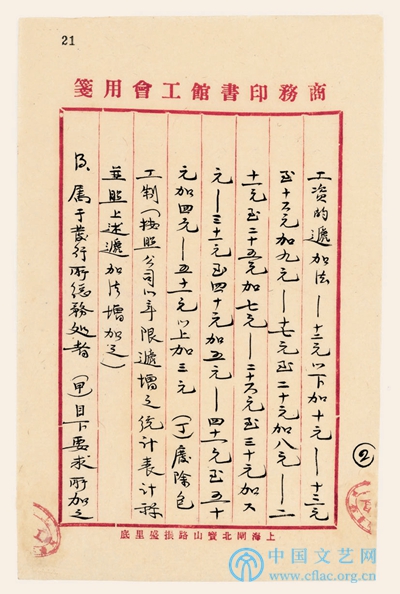 21
商務印書館工會用箋
工资的遞加法——十二元以下加十元——十三元
至十六元加九元——十七元至二十元加八元——二
十一元至二十五元加七元——二十六元至三十元加六
元——三十一元至四十元加五元——四十一元至五十
元加四元——五十一元以上加三元 (丁)廢除包
工制(按照公司以年限遞增之统计表计算
並照上述遞加法增加之)
B、属于發行所总務处者 (甲)目下要求所加之
②
上海閘北寶山路張盛里底
中国文艺网
www.cflac.org.cn